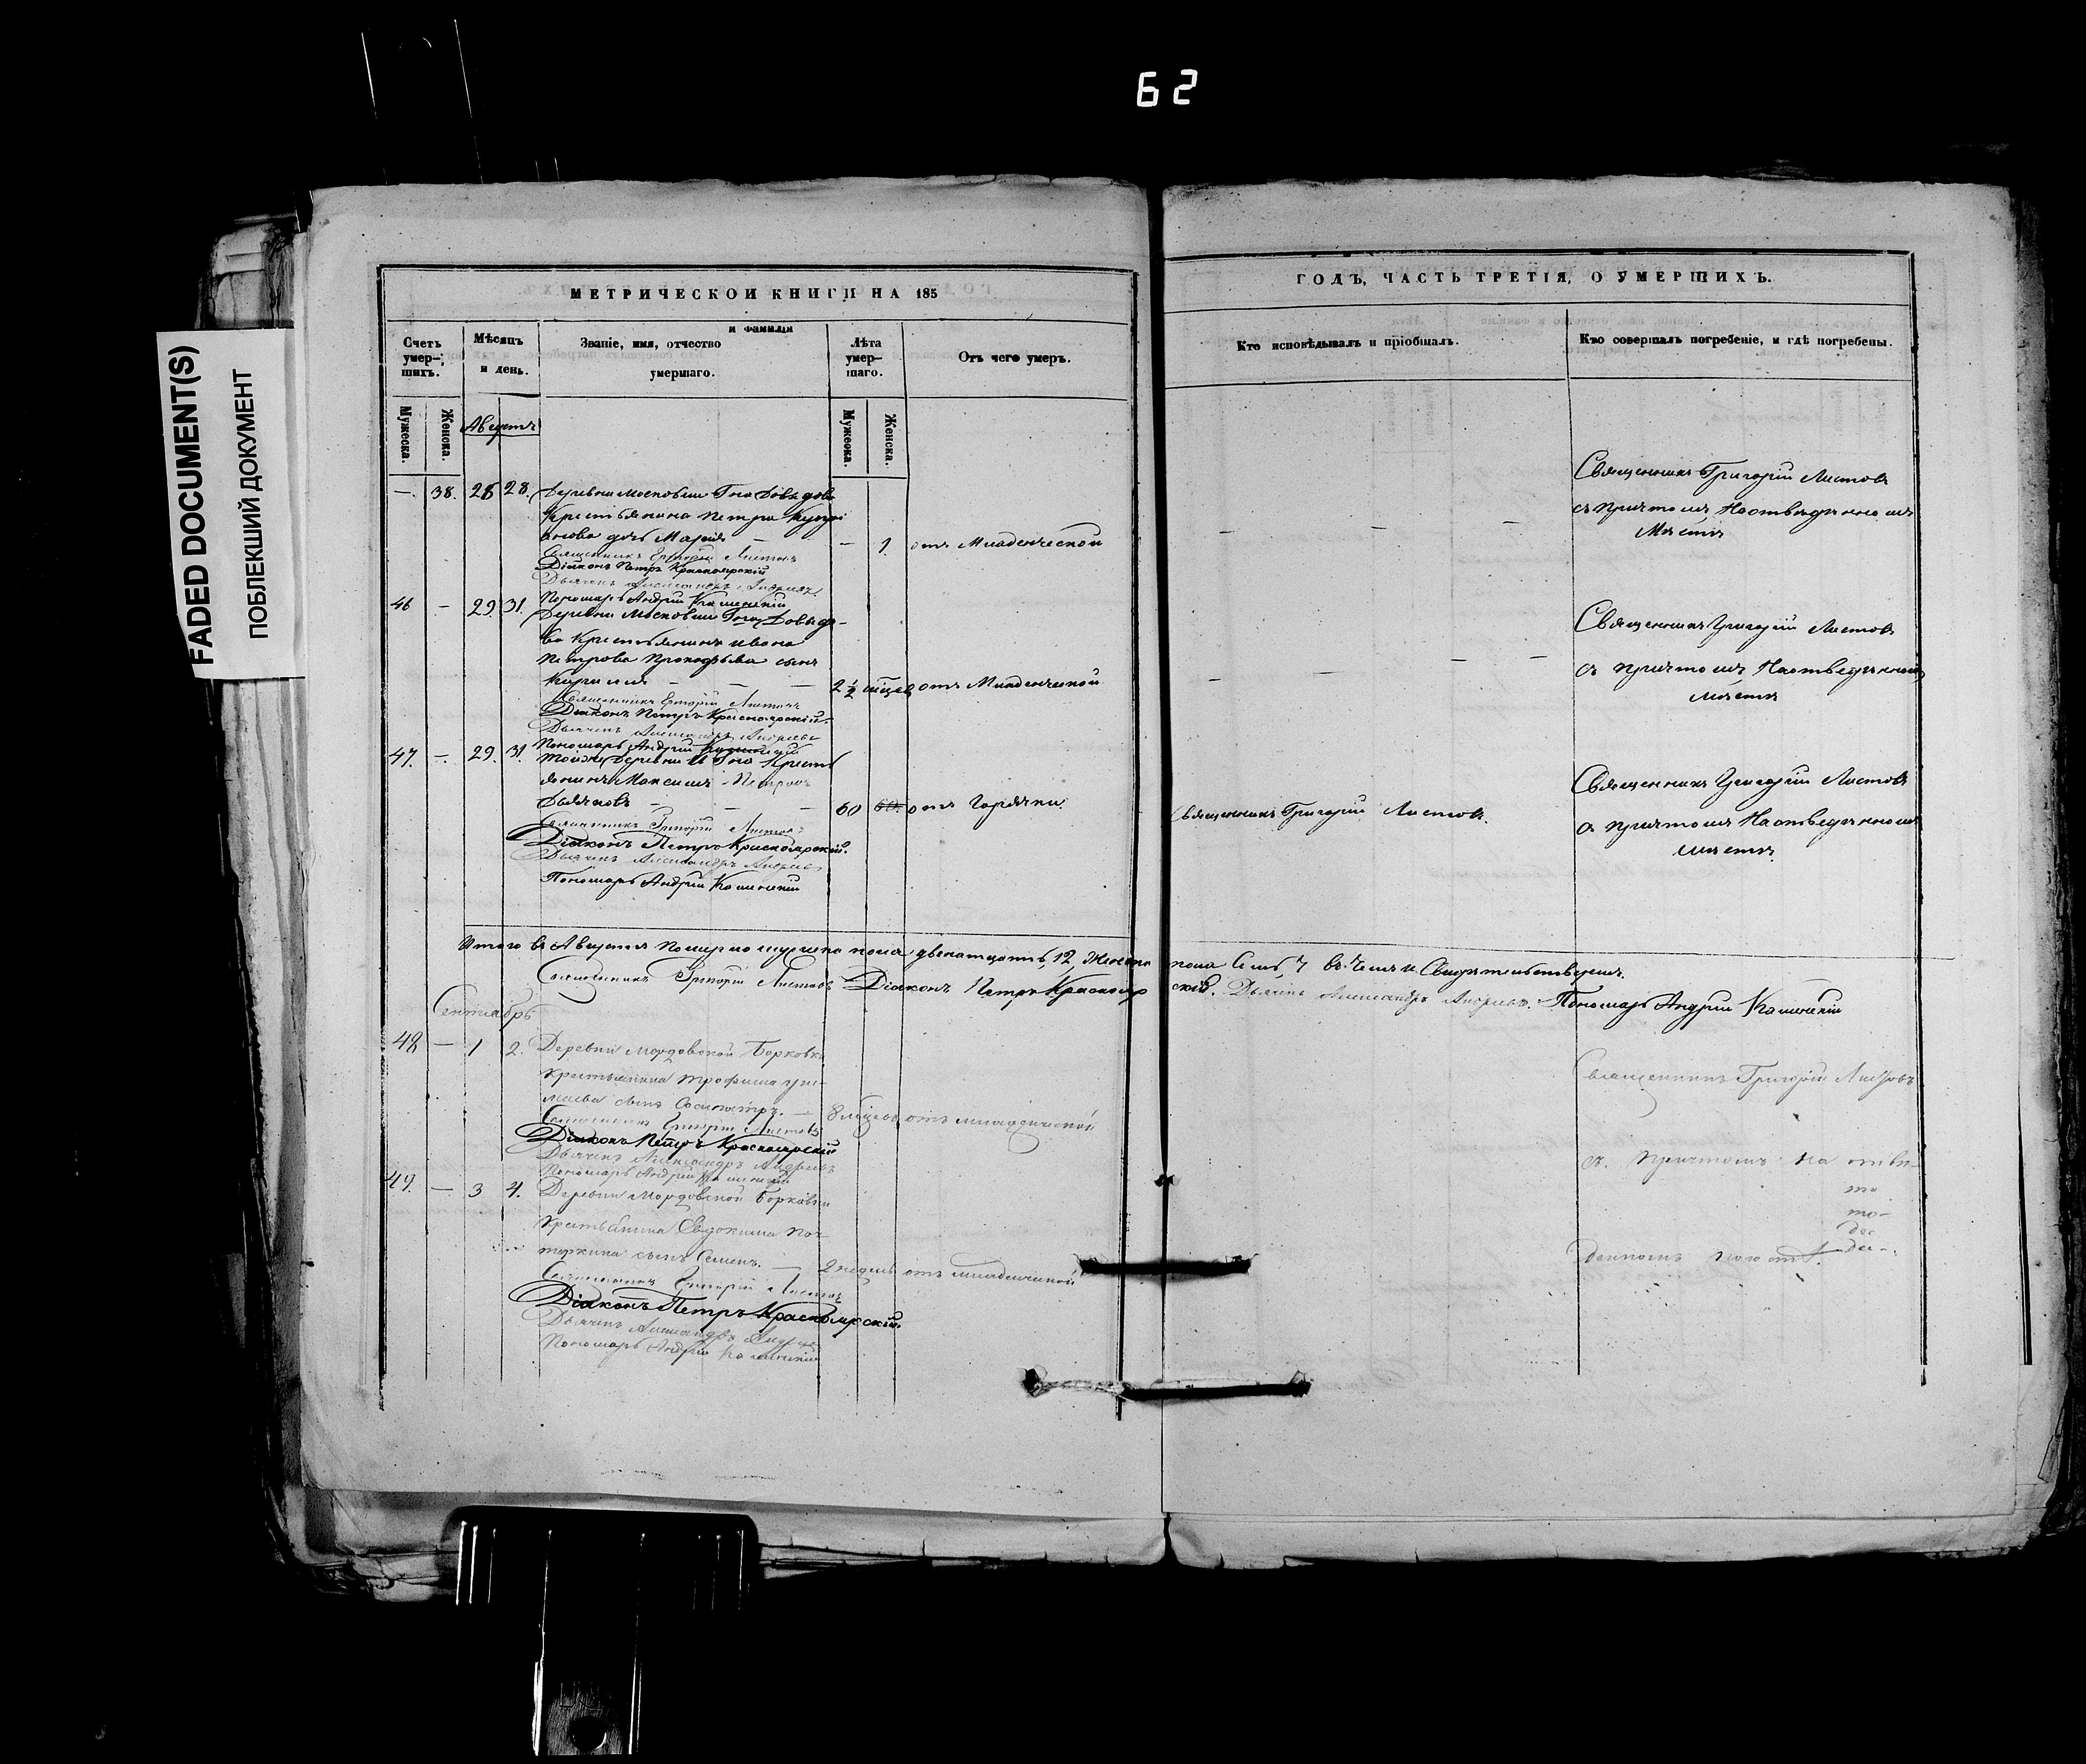 62
FADED DOCUMENT(S)
ПОБЛЕКШИЙ ДОКУМЕНТ
МЕТРИЧЕСКОЙ КНИГИ НА 185
Счетъ умер-шихъ.
Мѣсяцъ и день.
Званіе, имя, отчество и фамилія умершаго.
Лѣта умер-шаго.
Отъ чего умеръ.
Мужеска.
Женска.
Августъ
Мужеска.
Женска.
— 38. 28 28. Деревни Московки Гна Давыдова
Крестьянина Петра
дочь Марія — — 1. отъ Младенческой
Священникъ Григорій Листовъ
Діаконъ Петръ Красноярскій
Дьячекъ Александръ Андреевъ
Пономарь Андрей Каменскій
46 — 29. 31. Деревни Московки Гна Давыдо-
ва Крестьянина Ивана
Петрова сынъ
Кирилъ — — 2½ мѣсец отъ Младенческой
Священникъ Григорій Листовъ
Діаконъ Петръ Красноярскій
Дьячекъ Александръ Андреевъ
Пономарь Андрей Каменскій
47. — 29. 31. Тойже деревни и Гна Кресть
янинъ Максимъ Петровъ
— — 60 отъ Горячки
Священникъ Григорій Листовъ
Діаконъ Петръ Красноярскій.
Дьячекъ Александръ Андреевъ
Пономарь Андрей Каменскій
Итого въ Августѣ померло мужеска пола двенатцать, 12, Женска
Священникъ Григорій Листовъ Діаконъ Петръ Краснояр
Сентябрь
48 — 1 2. Деревни Мордовской Борковки
Крестьянина Трофима
сынъ — 8 мѣцовъ отъ младенческой
Священникъ Григорій Листовъ
Діаконъ Петръ Красноярскій
Дьячекъ Александръ Андреевъ
Пономарь Андрей Каменскій
49. — 3 4. Деревни Мордовской Борковки
Крестьянина Евдокима
сынъ Семенъ. — 2 недель отъ младенческой
Священникъ Григорій Листовъ
Діаконъ Петръ Красноярскій.
Дьячекъ Александръ Андреевъ
Пономарь Андрей Каменскій
ГОДЪ, ЧАСТЬ ТРЕТІЯ, О УМЕРШИХЪ.
Кто исповѣдывалъ и пріобщалъ.
Кто совершалъ погребеніе, и гдѣ погребены.
Священникъ Григорій Листовъ
съ причтомъ На отведенномъ
Мѣстѣ
— — —
Священникъ Григорій Листовъ
съ причтомъ На отведенномъ
мѣстѣ
— — — —
Священникъ Григорій Листовъ.
Священникъ Григорій Листовъ
съ причтомъ На отведенномъ
мѣстѣ
пола Семь, 7 въ чемъ и Свидетельствуемъ.
скій. Дьячекъ Александръ Андреевъ. Пономарь Андрей Каменскій
Священникъ Григорій Листовъ
съ причтомъ на отве-
денномъ